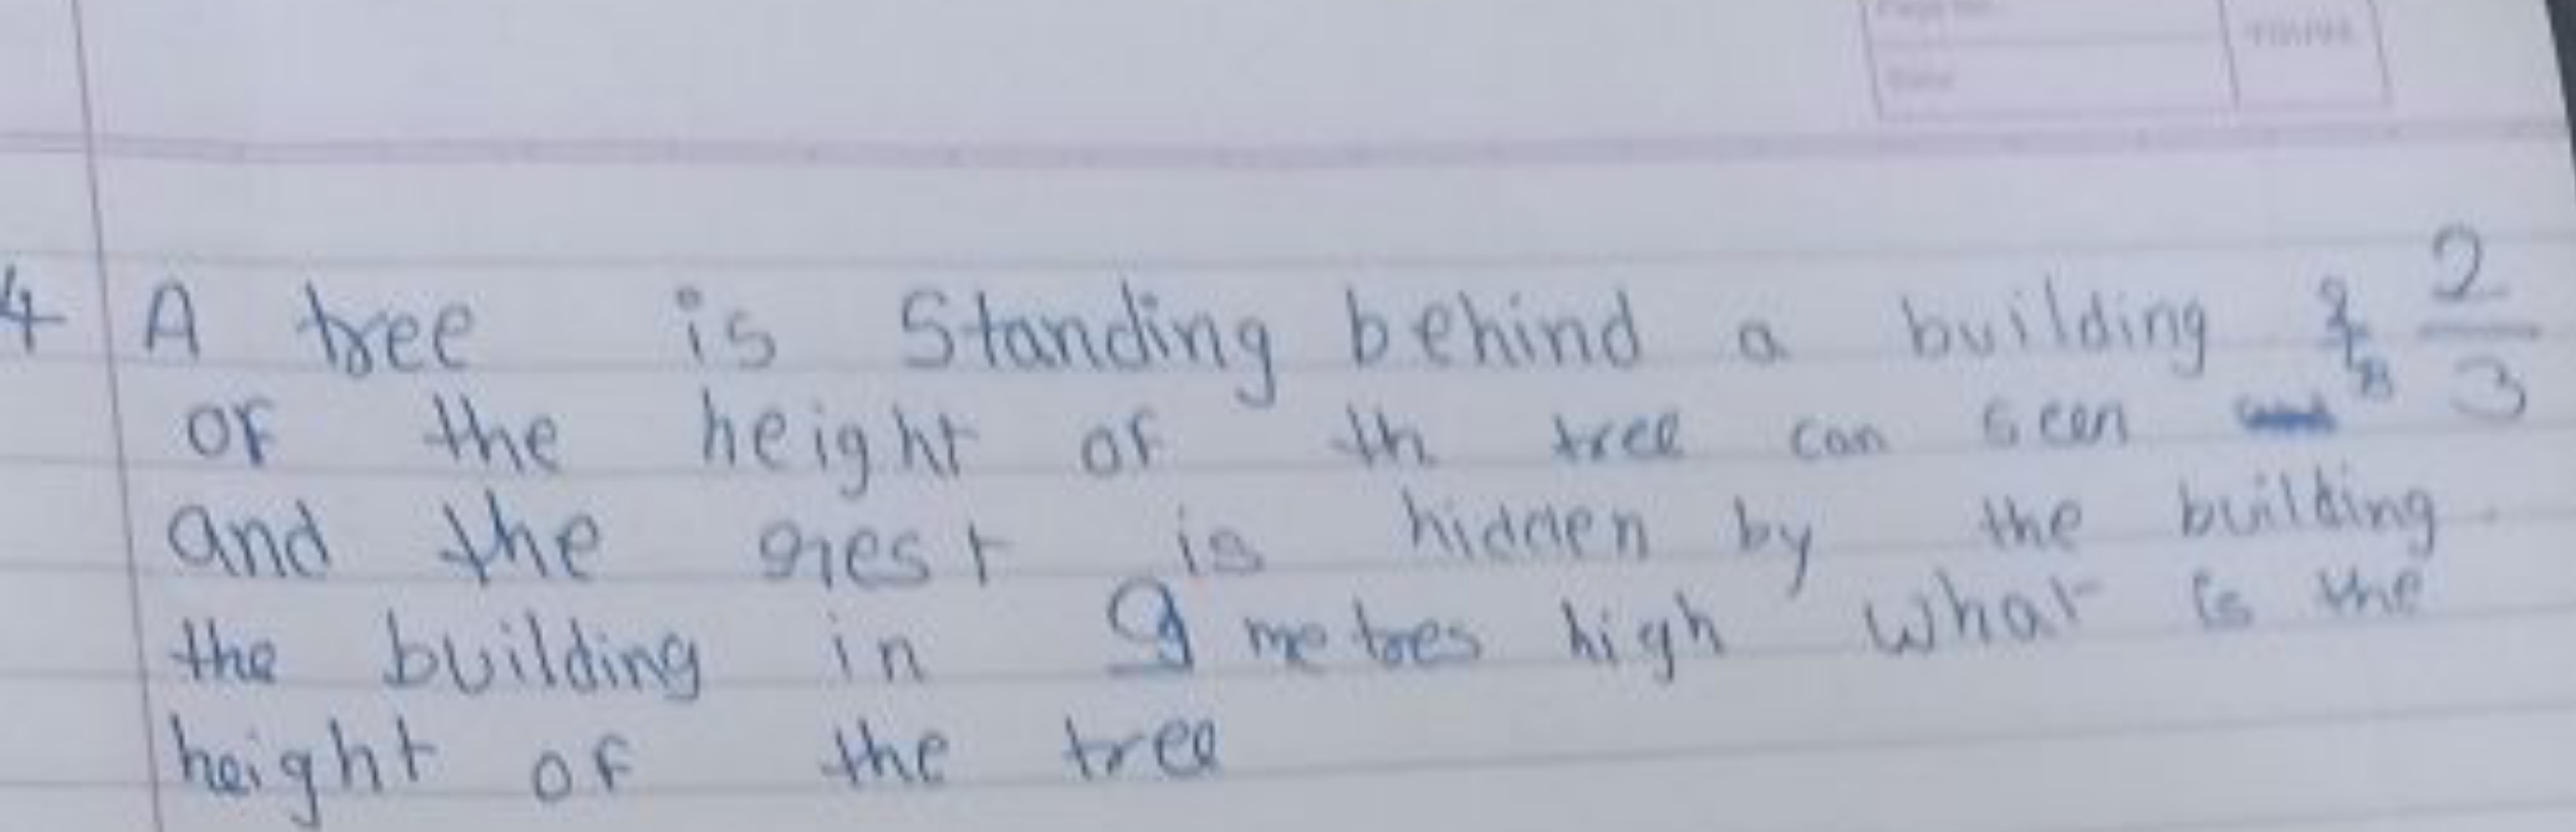 4 A tree is Standing behind a building 2/3
of the height of th tree can seen
and the rest is hidden by the building
the building in 9 metres high what is the
height of the tree